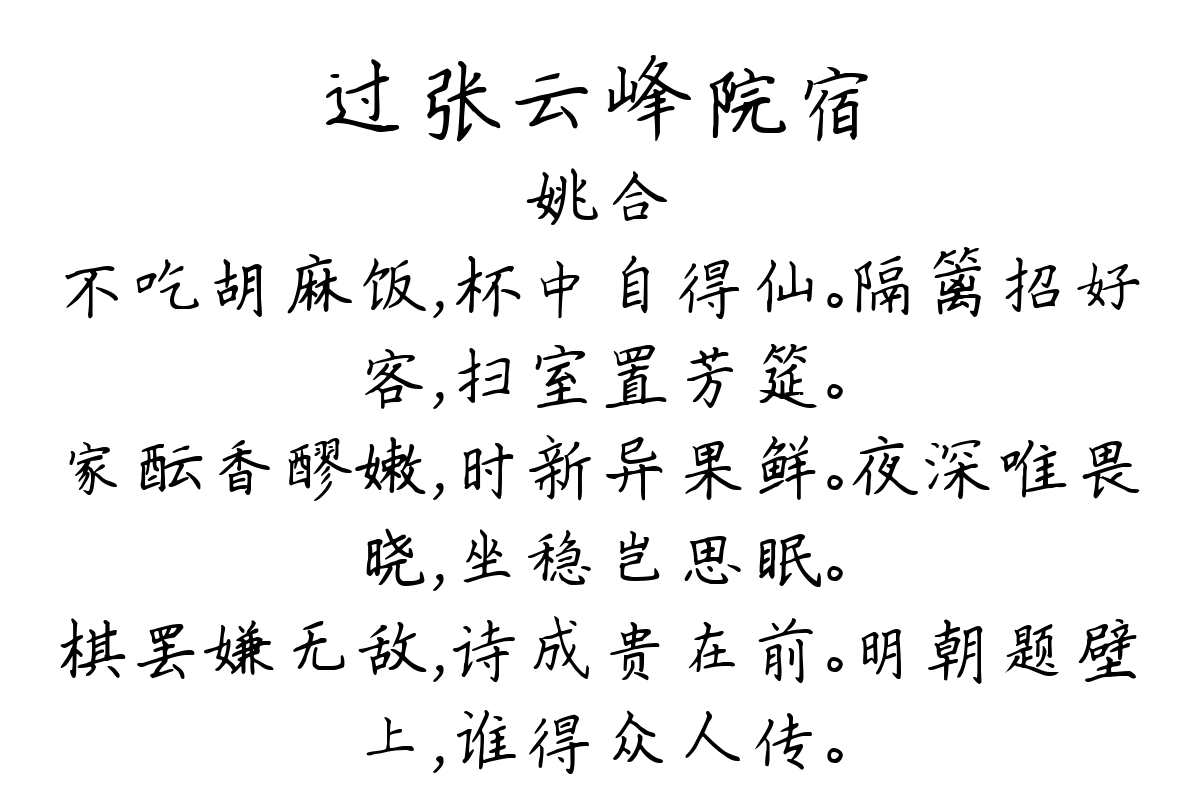 过张云峰院宿
姚合
不吃胡麻饭,杯中自得仙。隔篱招好
客,扫室置芳筵。
家酝香醪嫩,时新异果鲜。夜深唯畏
晓,坐稳岂思眠。
棋罢嫌无敌,诗成贵在前。明朝题壁
上,谁得众人传。